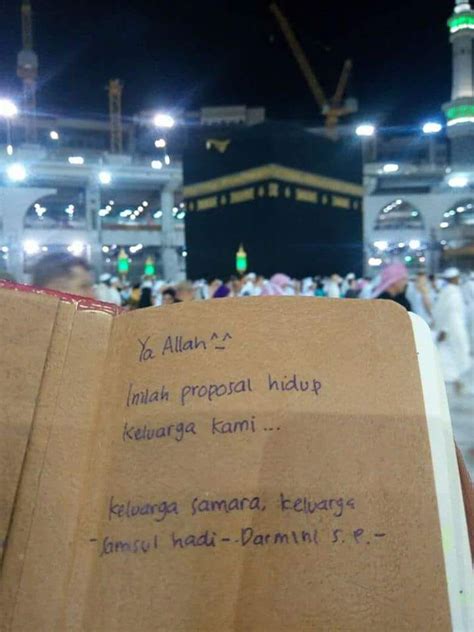 Ya Allah^_^
Inilah proposal hidup
keluarga kami...
keluarga samara, keluarga
-Samsul hadi-- Darmini s.e.-